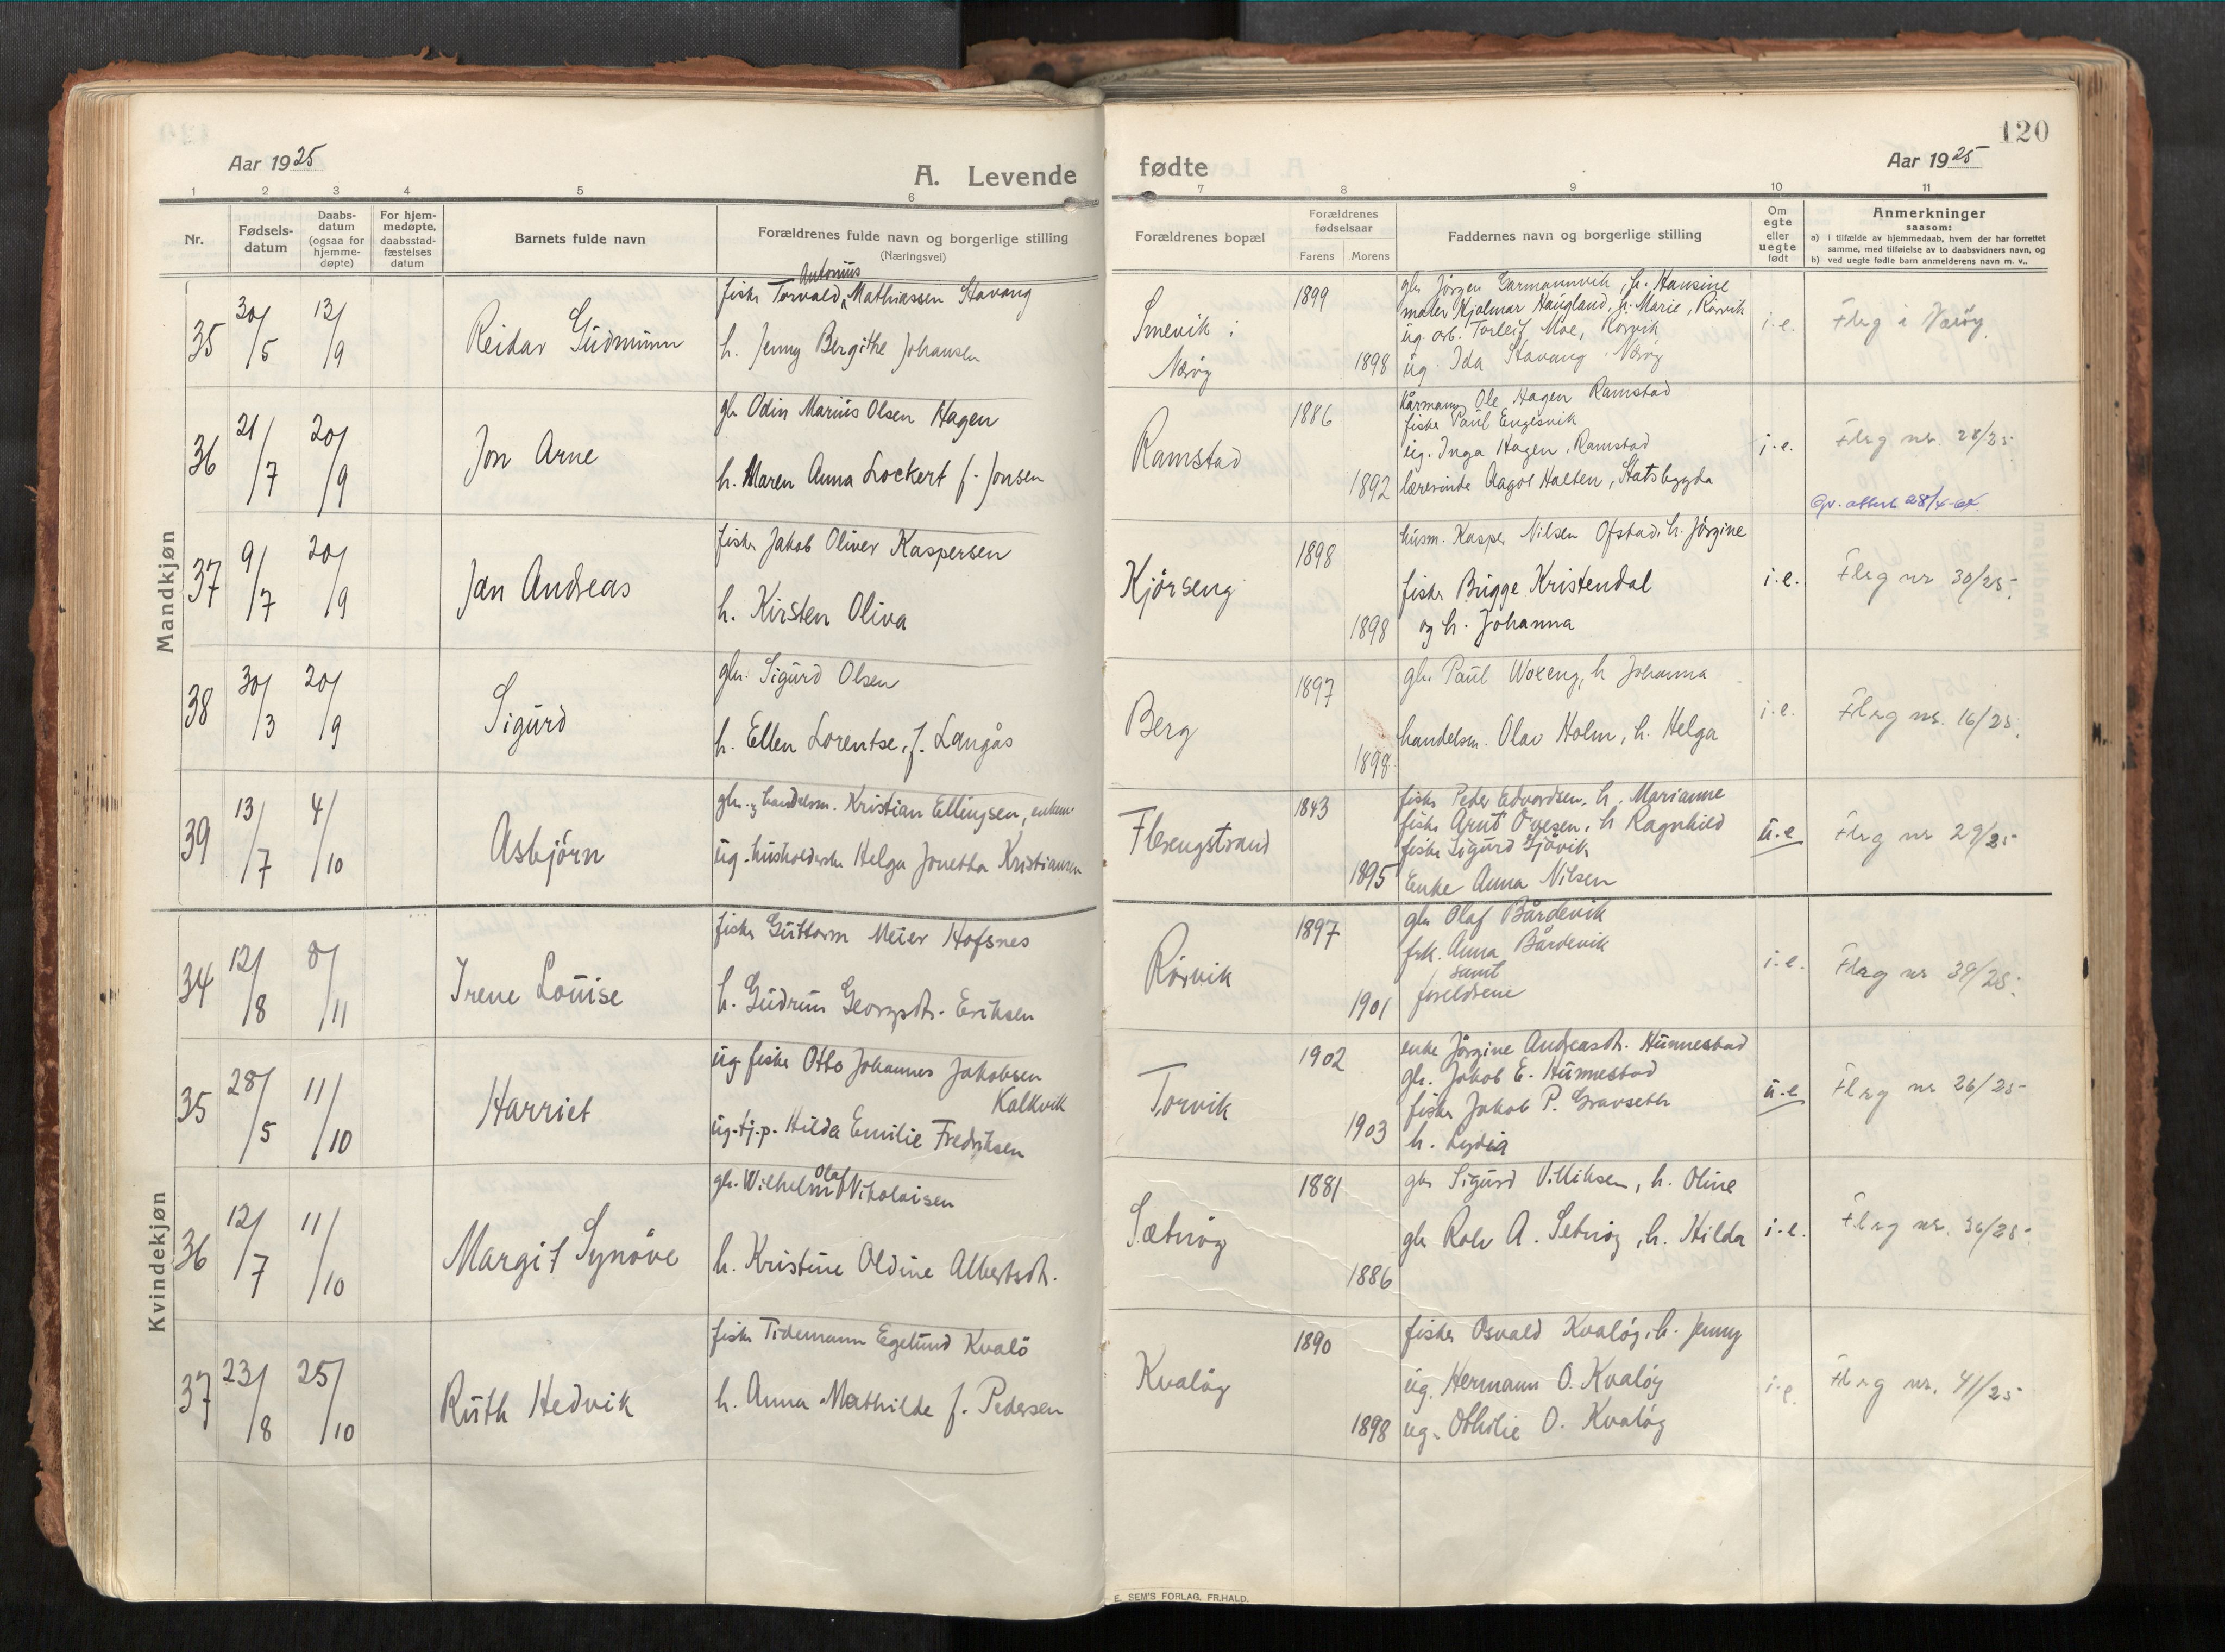 120
Aar 1925
A. Levende
fødte
Aar 1925
1 2 3 4 5 6 7 8 9 10 11
Nr.
Fødsels-
datum
Daabs-
datum
(ogsaa for
hjemme-
døpte)
For hjem-
medøpte,
daabsstad-
fæstelses
datum
Barnets fulde navn
Forældrenes fulde navn og borgerlige stilling
(Næringsvei)
Forældrenes bopæl
Forældrenes
fødselsaar
Farens Morens
Faddernes navn og borgerlige stilling
Om
egte
eller
uegte
født
Anmerkninger
saasom:
a) i tilfælde av hjemmedaab, hvem der har forrettet
samme, med tilføielse av to daabsvidners navn, og
b) ved uegte fødte barn anmelderens navn m. v..
Mandkjøn
35 30/5 13/9
Reidar Gudmunn
Antonius
fisker Torvald Mathiassen Stavang
h. Jenny Bergithe Johansen
Smevik i
Nærøy
1899
1898
gbr Jörgen Garmannvik, h. Hansine
maler Hjalmar Haugland, h. Marie, Rörvik
ug. arb. Torleif Moe, Rörvik
ug. Ida Stavang Nærøy
i.e.
Flrg i Nærøy
36 21/7 20/9
Jon Arne
gbr Odin Marius Olsen Hagen
h. Maren Anna Lockert f. Jonsen
Ramstad
1886
1892
kårmann Ole Hagen Ramstad
fisker Paul Engesvik
ug. Inga Hagen, Ramstad
lærerinde Aagot Halten, Statsbygda
i.e.
Flrg nr. 28/25
37 9/7 20/9
Jan Andreas
fisker Jakob Oliver Kaspersen
h. Kirsten Oliva
Kjörseng
1898
1898
husm. Kasper Nilsen Ofstad, h. Jörgine
fisker Brügge Kristendal
og h. Johanna
i.e.
Flrg nr 30/25
38 30/3 20/9
Sigurd
gbr. Sigurd Olsen
h. Ellen Lorentse, f. Langås
Berg
1897
1898
gbr Paul Woxeng, h Johanna
handelsm. Olav Holm, h. Helga
i.e.
Flrg nr. 16/25
39 13/7 4/10
Asbjörn
gbr. og handelsm. Kristian Ellingsen, enkem.
ug. husholderske Helga Jonetha Kristiansen
Flesengstrand
1843
1895
fisker Peder Edvardsen, h. Marianne
fisker Arnt Ovesen, h Ragnhild
fisker Sigurd Gjövik
Enke Anna Nilsen
u.e
Flrg nr 29/25
Kvindekjøn
34 12/8 8/11
Irene Louise
fisker Guttorm Meier Hofsnes
h. Gudrun Georgsdtr. Eriksen
Rörvik
1897
1901
gbr Olaf Bårdevik
frk. Anna Bårdevik
samt
foreldrene
i.e.
Flrg nr 39/25
35 28/5 11/10
Harriet
ug fisker Otto Johannes Jakobsen
Kalkvik
ug. tj.p. Hilda Emilie Fredriksen
Torvik
1902
1903
enke Jörgine Andreasdtr. Hunnestad
gbr. Jakob E. Hunnestad
fisker Jakob P. Gravseth
h. Lydia
u.e
Flrg nr 26/25
36 12/7 11/10
Margit Synöve
Olaf
gbr. Wilhelm Nikolaisen
h. Kristine Oldine Albertsdtr.
Sætnöy
1881
1886
gbr Sigurd Villiksen, h. Oline
gbr Rolv A. Setnöy, h. Hilda
i.e.
Flrg nr. 36/25
37 23/8 25/10
Ruth Hedvik
fisker Tidemann Egelund Kvalö
h. Anna Mathilde f. Pedersen
Kvalöy
1890
1898
fisker Osvald Kvalöy, h. Jenny
ug. Hermann O. Kvalöy
ug. Othilie O. Kvalöy
i.e.
Flrg nr. 41/25
E. SEM'S FORLAG, FR.HALD.